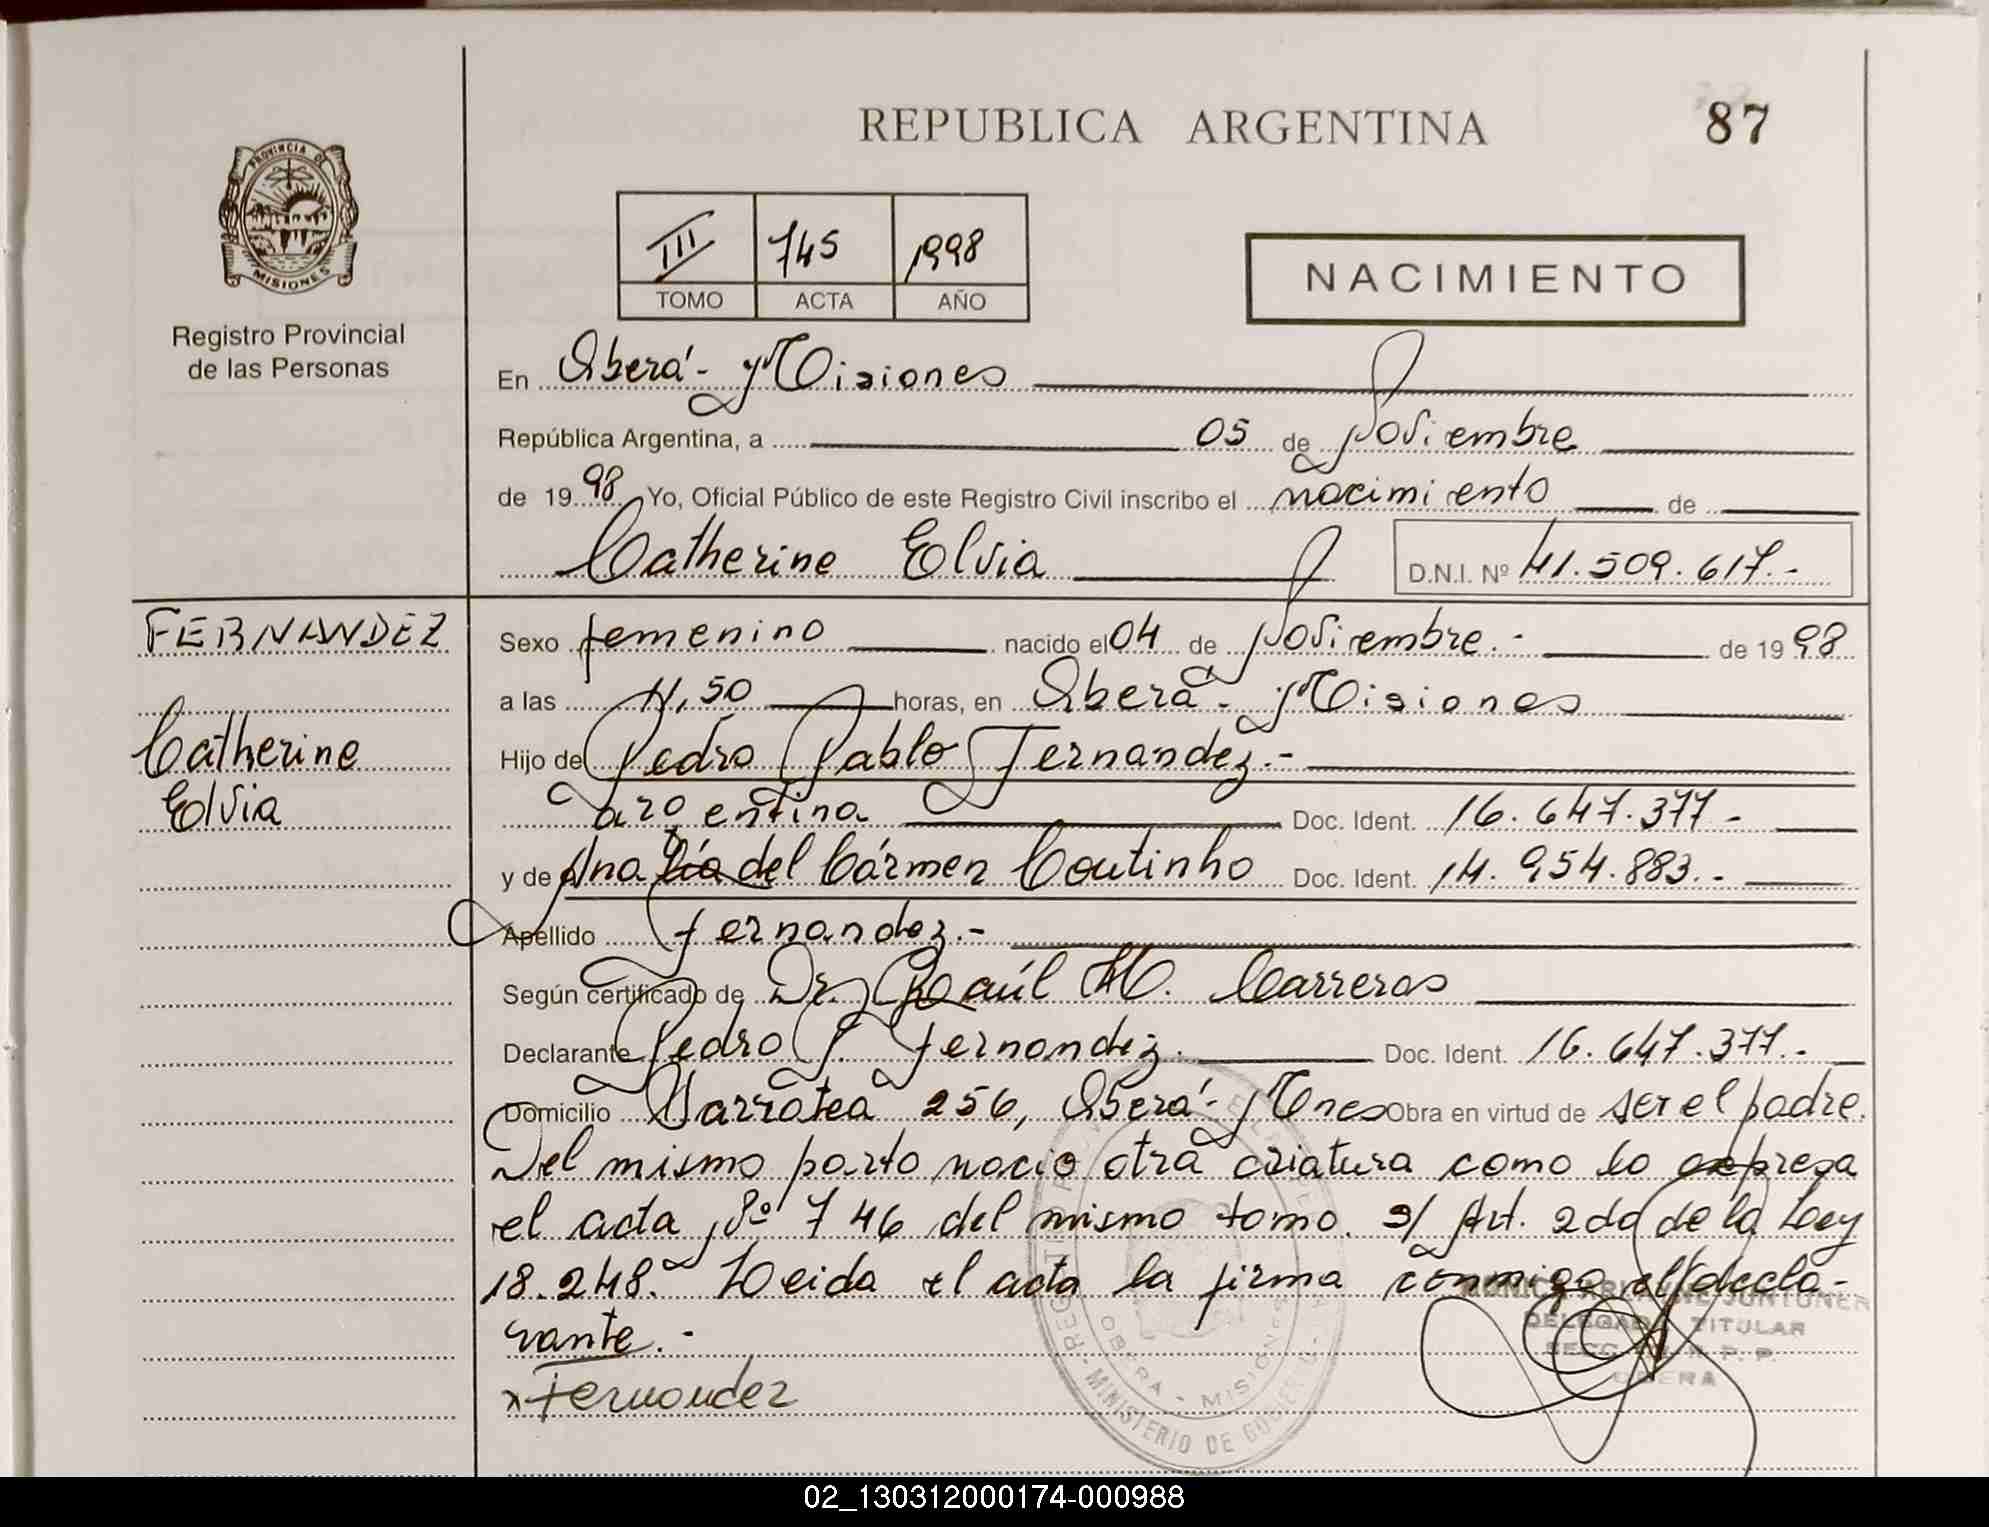 REPUBLICA ARGENTINA
87
PROVINCIA DE
MISIONES
Registro Provincial
de las Personas
III 745 1998
TOMO ACTA AÑO
NACIMIENTO
En Oberá - Misiones
República Argentina, a 05 de Noviembre
de 19 98 Yo, Oficial Público de este Registro Civil inscribo el nacimiento de
Catherine Elvia D.N.I. Nº 41.509.617.-
FERNANDEZ
Catherine
Elvia
Sexo femenino nacido el 04 de Noviembre.- de 19 98
a las 11,50 horas, en Oberá - Misiones
Hijo de Pedro Pablo Fernandez.-
argentina Doc. Ident. 16.647.377 -
y de Ana Lía del Cármen Coutinho Doc. Ident. 14.954.883.-
Apellido Fernandez.-
Según certificado de Dr. Raúl H. Carreras
Declarante Pedro P. Fernandez. Doc. Ident. 16.647.377.-
Domicilio 256, Oberá - Mnes Obra en virtud de ser el padre.
Del mismo parto nacio otra criatura como lo expresa
el acta Nº 746 del mismo tomo. s/ Art. 2do de la Ley
18.248. Leida el acta la firma conmigo el decla-
rante.-
x Fernandez
DELEGADA TITULAR
OBERA
OBERA - MISIONES
MINISTERIO DE GOBIERNO
02_130312000174-000988